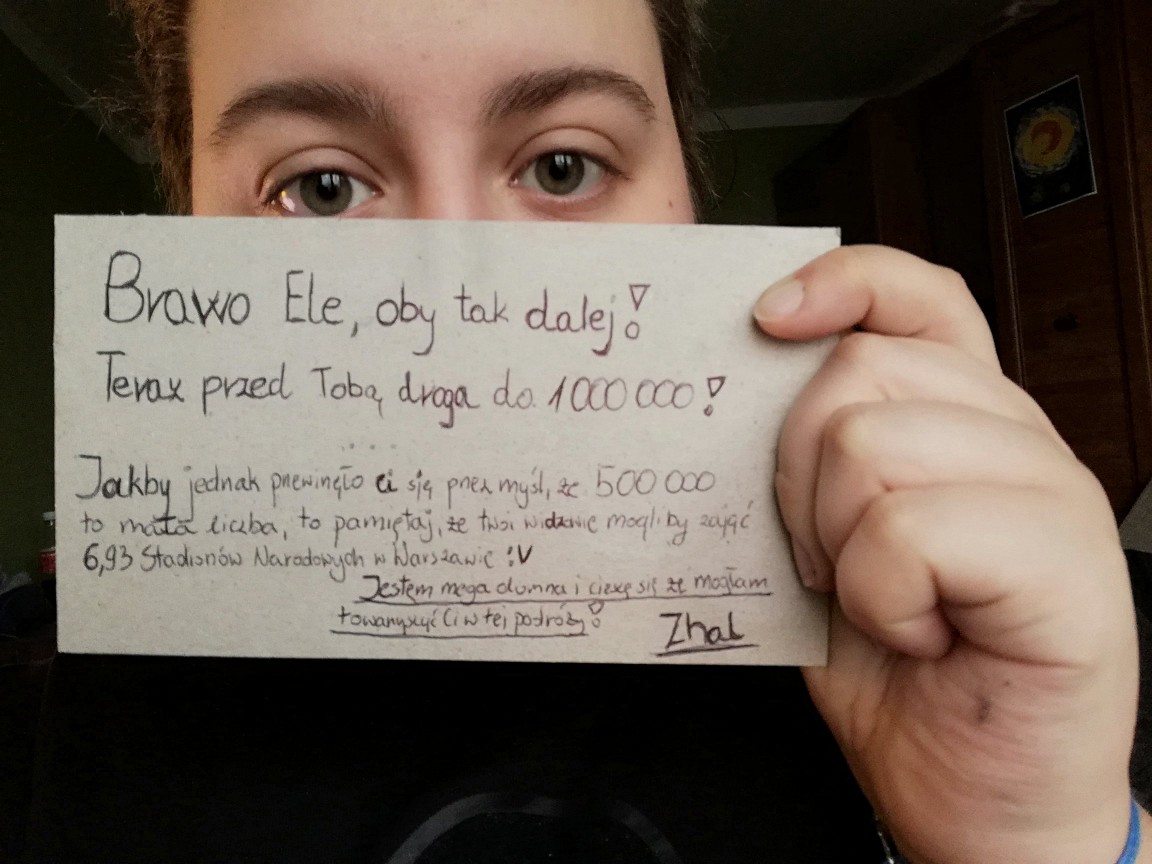 Brawo Ele, oby tak dalej!
Teraz przed Tobą droga do 1000 000!
Jakby jednak przewinęło ci się przez myśl, że 500 000
to mała liczba, to pamiętaj, że twoi widzowie mogliby zająć
6,93 Stadionów Narodowych w Warszawie :V
Jestem mega dumna i cieszę się że mogłam
towarzyszyć Ci w tej podróży!
Zhal